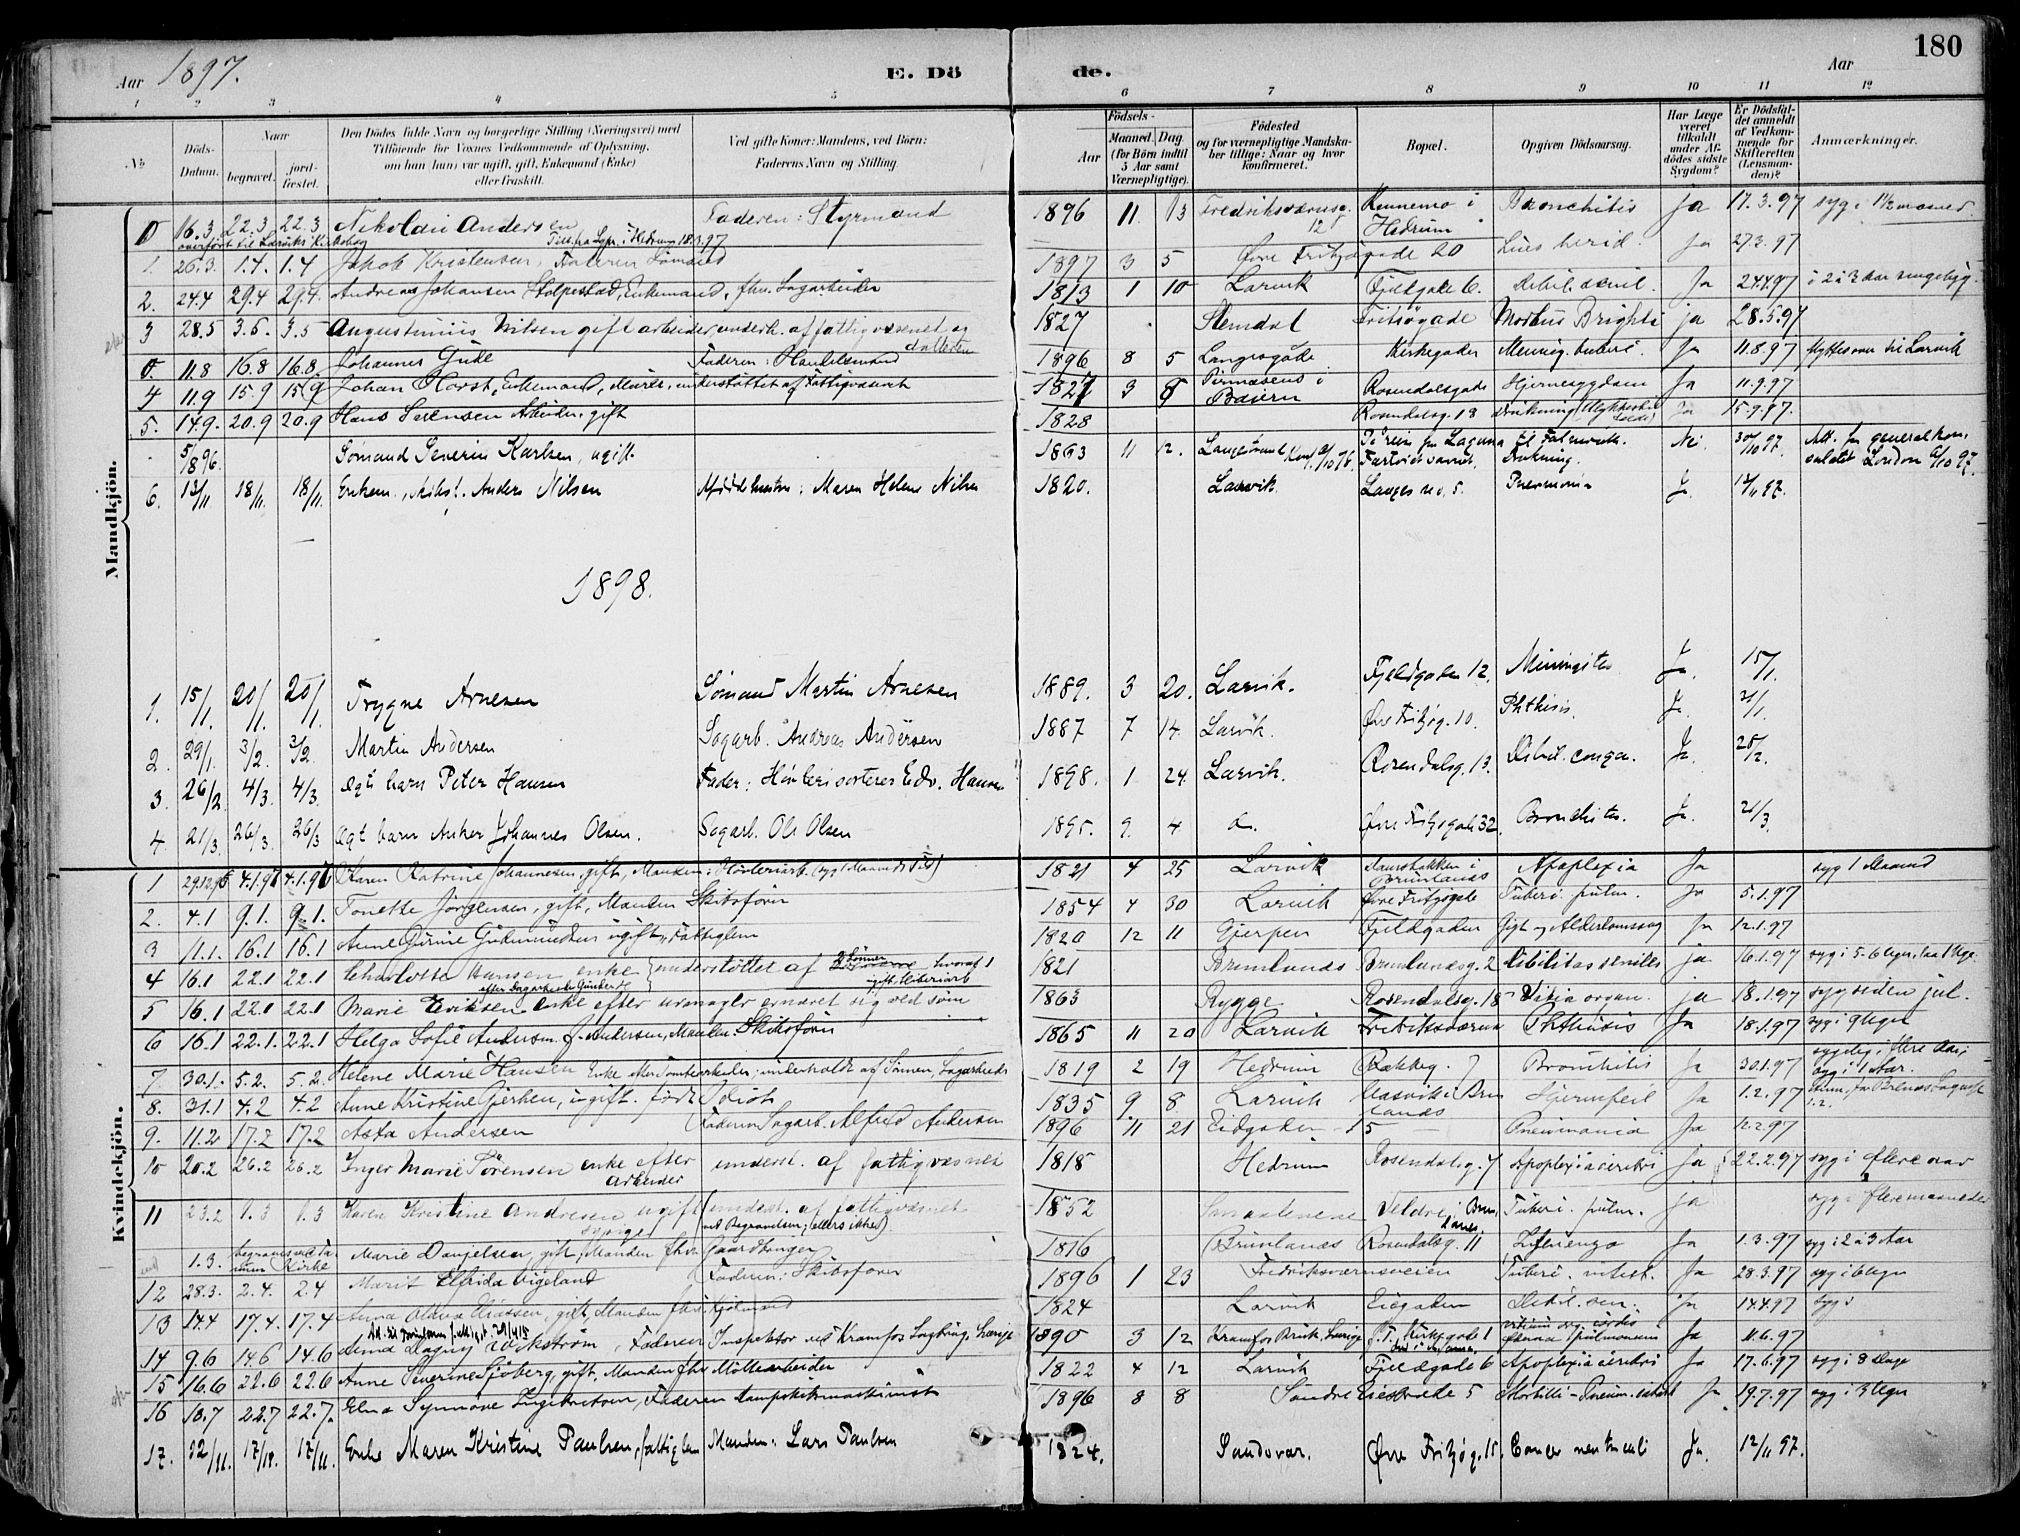 180
Aar 1897. E. Dö de. Aar
1 2 3 4 5 6 7 8 9 10 11 12
No
Døds-Datum.
Naar
begravet.
jord-fæstet.
Den Dödes fulde Navn og borgerlige Stilling (Næringsvei) med
Tilföiende for Voxnes Vedkommende af Oplysning,
om han (hun) var ugift, gift, Enkemand (Enke)
eller fraskilt.
Ved gifte Koner: Mandens, ved Börn:
Faderens Navn og Stilling.
Födsels-
Aar
Maaned. Dag.
(for Börn indtil
5 Aar samt
Værnepligtige).
Födested
og for værnepligtige Mandska-
ber tillige: Naar og hvor
konfirmeret.
Bopæl.
Opgiven Dödsaarsag.
Har Læge
været
tilkaldt
under Af-
dödes sidste
Sygdom?
Er Dödsfal-
det anmeldt
af Vedkom-
mende for
Skifteretten
(Lensman-
den)?
Anmærkninger.
Mandkjön.
0 16.3 22.3 22.3 Nikolai Andersen Faderen: Styrmand 1896 11 13 Fredriksværnsg. 12 Hedrum Bronchitis Ja 17.3.97 syg i 1½ maaned
1. 26.3. 1.4. 1.4 Jakob Kristensen, Faderen Sømand 1897 3 5 Øvre Fritzøgade 20 Lues herid. Ja 27.3.97
2. 24.4 29.4 29.4. Andreas Johansen Stolpestad, Enkemand, fhv. Sagarbeider 1813 1 10 Larvik Fjeldgade 6. Debil. senil. Ja 24.4.97 i 2 à 3 Aar sengeligg.
3 28.5 3.6. 3.5 Augustinius Nilsen gift arbeider underh. af fattigvæsenet og datteren 1827 Slemdal Fritsøgade Morbus Brighti ja 28.5.97
0. 11.8 16.8 16.8 Johannes Gude Faderen: Handelsmand 1896 8 5 Langesgade Kirkegaden Mening. tuberc. Ja 11.8.97 flyttes over til Larvik
4 11.9 15.9 15.9 Johan Horst, Enkemand, Maler, understøttet af Fattigvæsnet 1827 3 8 Pirmasens i Baiern Rosendalsgade Hjernesygdom Ja 11.9.97
5. 14.9. 20.9 20.9 Hans Sørensen Arbeider, gift 1828 Rosendalsg. 13 Drukning Ja 15.9.97.
5/8 96. Sømand Severin Karlsen, ugift. 1863 11 12. Langesund Drukning. Nei 30/10 97. Att. fra generalkonsulatet London
6. 13/11 18/11 18/11 Enkem., Anders Nilsen Afdødes hustru: Maren Helene Nilsen 1820. Larvik. Langes v. 5. Pneumonia Ja 13/11 97.
1898.
1. 15/1. 20/1. 20/1. Trygve Arnesen Sømand Martin Arnesen 1889. 3 20. Larvik. Fjeldgaden 12. Meningitis Ja. 15/1.
2. 29/1. 3/2. 3/2. Martin Andersen Sagarb. Andreas Andersen 1887 7 14. Larvik. Øvre Fritzøg. 10. Phthisis. Ja.
3. 26/2. 4/3. 4/3. Ægte barn Peter Hansen Fader: Høvlerisorterer Edv. Hansen 1898. 1 24. Larvik. Rosendalsg. 13. Debil. conga. Ja. 28/2.
4. 21/3. 26/3. 26/3 Ægt. barn Anker Johannes Olsen. Sagarb. Ole Olsen 1895. 9. 4 do. Øvre Fritzøgade 32. Bronchitis. Ja. 21/3.
Kvindekjön.
1 29.12.96 4.1.97 4.1.97 Karen Katrine Johannesen, gift, Manden: Høvleriarb. 1821 4 25 Larvik Brunlanes Apoplexia Ja syg 1 Maaned
2. 4.1 9.1. 9.1. Tonette Jørgensen, gift, Manden Skibsfører 1854 4 30 Larvik Øvre Fritzøgade Tuberc. pulm. Ja 5.1.97
3 11.1. 16.1 16.1 Anne Gurine Gudmundsen ugift, Fattiglem 1820 12 11 Gjerpen Fjeldgaden Gigt og Alderdomssvag Ja 12.1.97
4 16.1 22.1 22.1 Charlotte Hansen enke understøttet af 2 Sønner hvoraf 1 gift Høvleriarb 1821 Brunlanes Brunlanesg. 2 Debilitas senilis ja 16.1.97
5 16.1 22.1 22.1 Marie Eriksen enke efter urmager ernæret sig ved søm 1863 Rygge Rosendalsg. 18 Vitia organ. ja 18.1.97 syg siden jul.
6 16.1 22.1. 22.1 Helga Sofie Andersen f. Andersen, Manden: Skibsfører 1865 11 20 Larvik Fredriksværnsv Phthisis Ja 18.1.97 syg i 9 Uger
7 30.1. 5.2. 5.2. Helene Marie Hansen Enke efter Tomtearbeider; underholdt af Sønnen, Sagarbeider 1819 2 19 Hedrum Rækkeg. 7 Bronchitis Ja 30.1.97 sygelig i flere Aar, syg i 1 Aar.
8. 31.1 4.2 4.2 Anne Kristine Gjerken, ugift. født Idiot 1835 9 8 Larvik Brunlanes Hjertefeil Ja 1.2.97
9. 11.2 17.2 17.2 Asta Andersen Faderen Sagarb. Alfred Andersen 1896 11 21 Eidgaden 15 Pneumonia Ja 12.2.97
10 20.2 26.2 26.2 Inger Marie Sørensen enke efter arbeider underst. af fattigvæsnet 1818 Hedrum Rosendalsg. 7 Apoplexia cerebri ja 22.2.97 syg i flere aar
11 23.2 1.3 1.3 Karen Kristine Andresen ugift sypige (underst. af fattigvæsnet ved Begravelsen; ellers ikke) 1852 Smaalenene Tuberc. pulm. ja syg i flere maaneder
1.3. Marie Danielsen, gift, Manden fhv. Gaardbruger 1816 Brunlanes Rosendalsg. 11 Influenza Ja 1.3.97 syg i 2 à 3 Aar
12 28.3. 2.4. 2.4 Marit Elfrida Vigeland Faderen: Skibsfører 1896 1 23 Fredriksværnsveien Tuberc. intest. Ja 28.3.97 syg i 6 Uger
13 14.4 17.4. 17.4 Anna Olava Eliassen, gift, Manden fhv. Kjølmand 1824 Larvik Eiegaden Debil. sen. Ja 14.4.97 syg i
14 9.6 14.6 14.6 Anna Dagny Wikström, Faderen Inspektør ved Kramfos Sagbrug, Sverige 1890 3 12 Kramfos Bruk, Sverige P.T. Kirkegade 1 Ja 11.6.97
15 16.6 22.6 22.6 Anne Severine Sjöberg, gift, Manden fhv Møllearbeider 1822 4 12 Larvik Fjeldgade 6 Apoplexia cerebri Ja 17.6.97 syg i 8 Dage
16 18.7 22.7 22.7. Elna Synnøve Ingebretsen, Faderen Dampskibsmaskinist 1896 8 8 Søndre Eiestræde 5 Morbilli - Pneum. Ja 19.7.97 syg i 3 Uger
17. 12/11. 17/11. 17/11. Enke Maren Kristine Paulsen, fattiglem Manden: Lars Paulsen 1824. Sandevær. Øvre Fritzøg. 15. Cancer ventriculi Ja. 12/11 97.